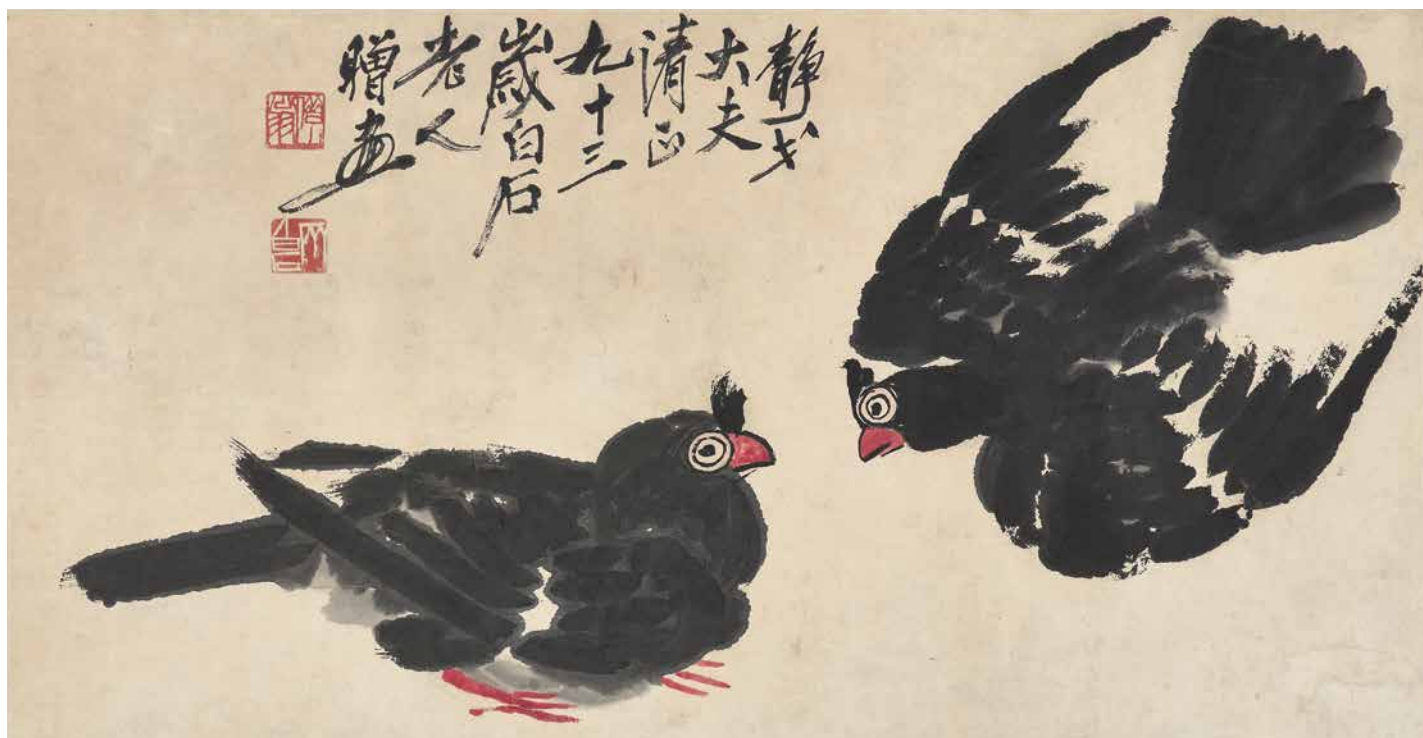 靜戈
大夫
清正
九十三
歲白石
老人
贈畫